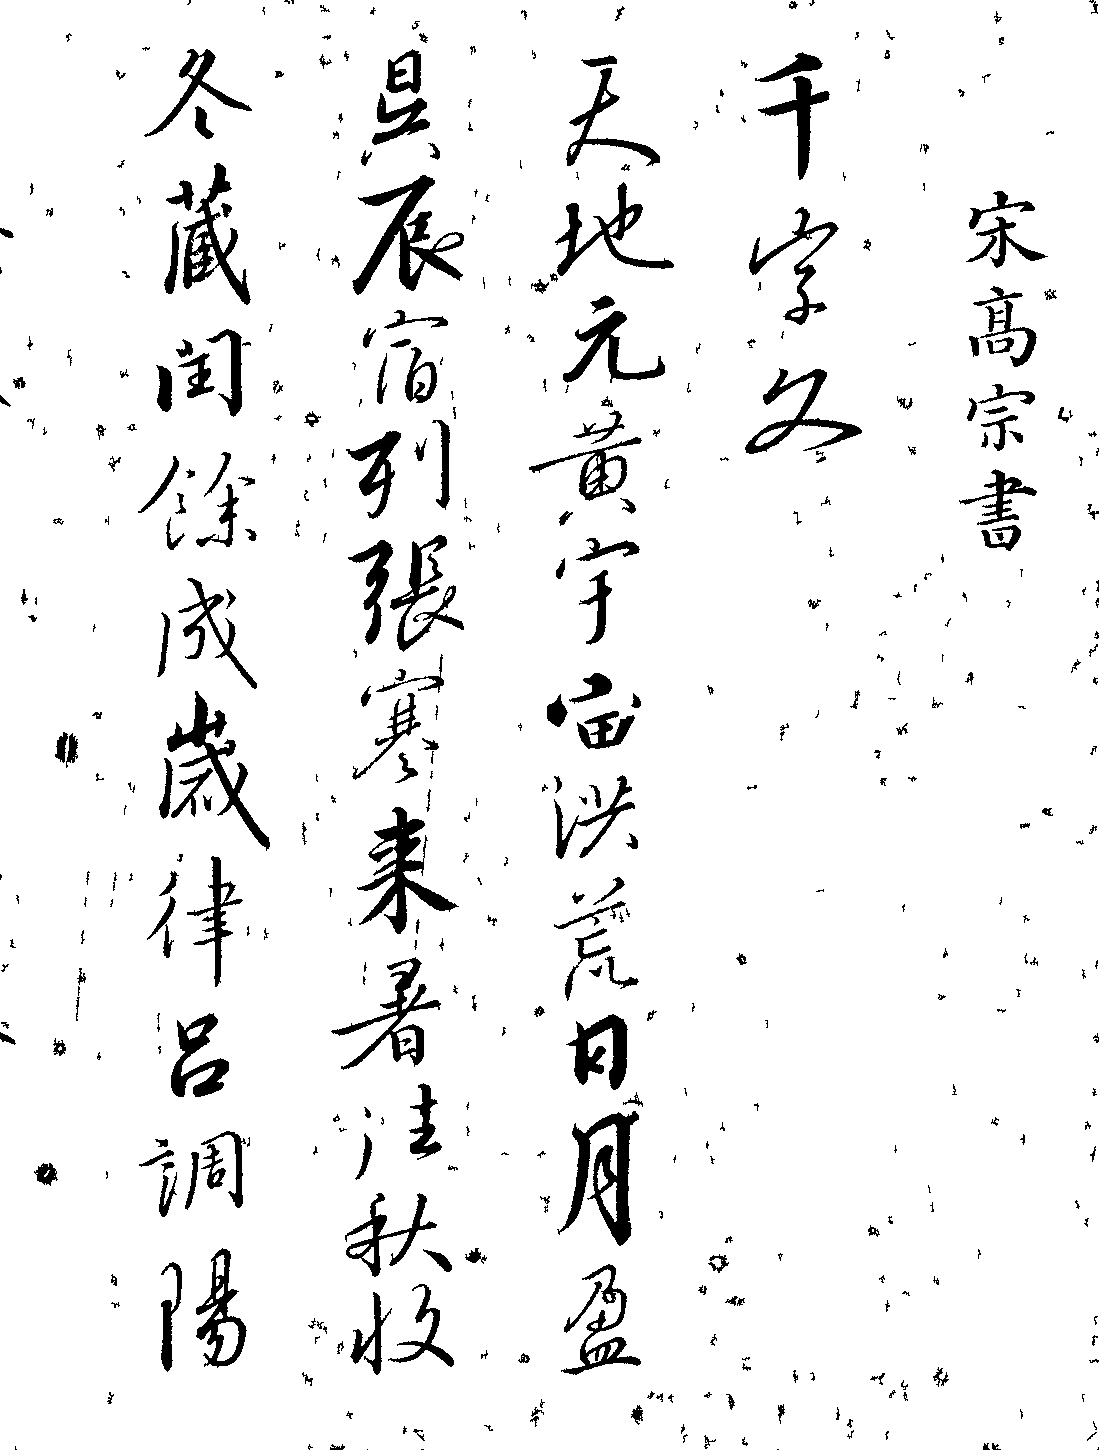 宋髙宗書
千字文
天地元黃宇宙洪荒日月盈
昃辰宿列張寒来暑往秋收
冬藏閏餘成歲律呂調陽